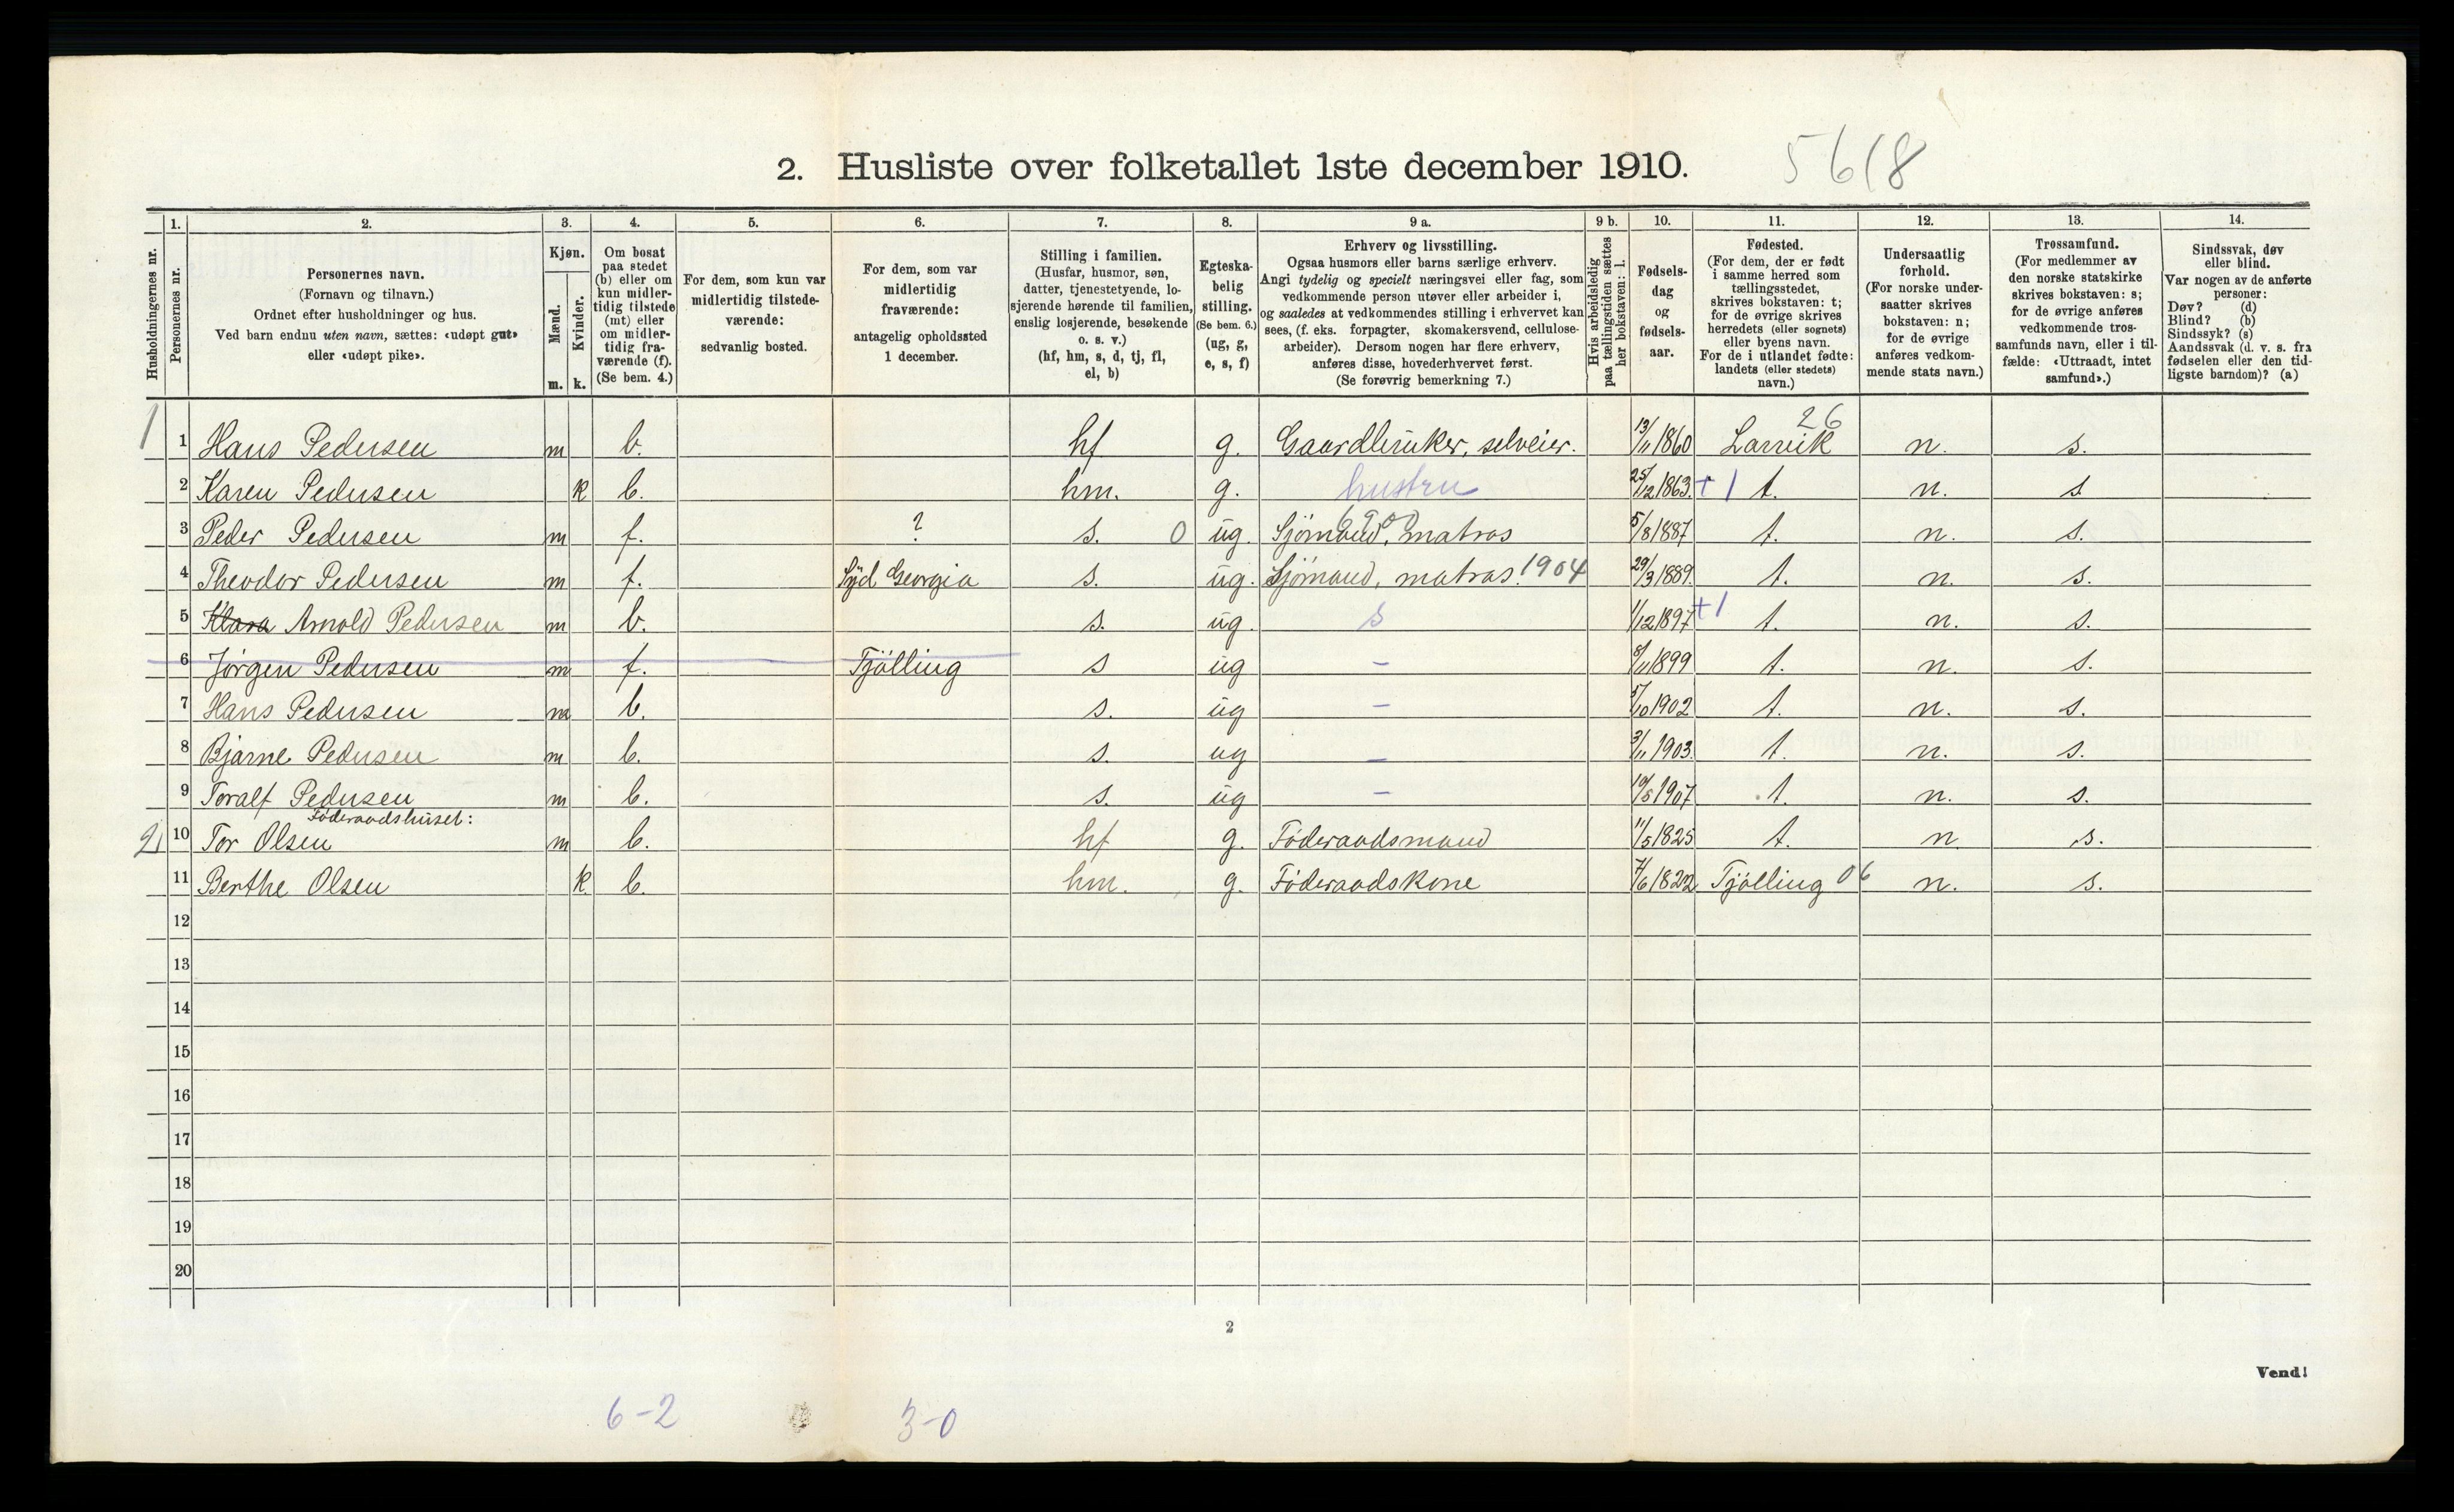 2. Husliste over folketallet 1ste december 1910. 5618
Husholdningernes nr.
1. Personernes nr.
2. Personernes navn.
(Fornavn og tilnavn.)
Ordnet efter husholdninger og hus.
Ved barn endnu uten navn, sættes: «udøpt gut»
eller «udøpt pike».
3. Kjøn.
Mænd. Kvinder.
m. k.
4. Om bosat
paa stedet
(b) eller om
kun midler-
tidig tilstede
(mt) eller
om midler-
tidig fra-
værende (f).
(Se bem. 4.)
5. For dem, som kun var
midlertidig tilstede-
værende:
sedvanlig bosted.
6. For dem, som var
midlertidig
fraværende:
antagelig opholdssted
1 december.
7. Stilling i familien.
(Husfar, husmor, søn,
datter, tjenestetyende, lo-
sjerende hørende til familien,
enslig losjerende, besøkende
o. s. v.)
(hf, hm, s, d, tj, fl,
el, b)
8. Egteska-
belig
stilling.
(Se bem. 6.)
(ug, g,
e, s, f)
9 a. Erhverv og livsstilling.
Ogsaa husmors eller barns særlige erhverv.
Angi tydelig og specielt næringsvei eller fag, som
vedkommende person utøver eller arbeider i,
og saaledes at vedkommendes stilling i erhvervet kan
sees, (f. eks. forpagter, skomakersvend, cellulose-
arbeider). Dersom nogen har flere erhverv,
anføres disse, hovederhvervet først.
(Se forøvrig bemerkning 7.)
9 b. Hvis arbeidsledig
paa tællingstiden sættes
her bokstaven: l.
10. Fødsels-
dag
og
fødsels-
aar.
11. Fødested.
(For dem, der er født
i samme herred som
tællingsstedet,
skrives bokstaven: t;
for de øvrige skrives
herredets (eller sognets)
eller byens navn.
For de i utlandet fødte:
landets (eller stedets)
navn.)
12. Undersaatlig
forhold.
(For norske under-
saatter skrives
bokstaven: n;
for de øvrige
anføres vedkom-
mende stats navn.)
13. Trossamfund.
(For medlemmer av
den norske statskirke
skrives bokstaven: s;
for de øvrige anføres
vedkommende tros-
samfunds navn, eller i til-
fælde: «Uttraadt, intet
samfund».)
14. Sindssvak, døv
eller blind.
Var nogen av de anførte
personer:
Døv? (d)
Blind? (b)
Sindssyk? (s)
Aandssvak (d. v. s. fra
fødselen eller den tid-
ligste barndom)? (a)
26
1 1 Hans Pedersen m b. hf g. Gaardbruker, selveier. 13/11 1860 Larvik n. s.
2 Karen Pedersen k b. hm. g. hustru 25/12 1863. +1 t. n. s
3 Peder Pedersen m f. ? s. 0 ug. Sjömand, matros 5/8 1887 t. n. s.
4 Theodor Pedersen m f. Syd Georgia s. ug. Sjömand, matros. 1904 29/3 1889. t. n. s.
5 Klara Arnold Pedersen m b. s. ug. s 1/12 1897 +1 t. n. s.
6 Jörgen Pedersen m f. Tjölling s ug – 8/11 1899 t. n. s.
7 Hans Pedersen m b. s. ug – 5/10 1902 t. n. s.
8 Bjarne Pedersen m b. s. ug – 3/11 1903. t. n. s.
9 Toralf Pedersen m b. s. ug – 10/5 1907 t. n. s.
Föderaadshuset:
2 10 Tor Olsen m b. hf g. Föderaadsmand 11/5 1825 t. n s.
11 Berthe Olsen k. b. hm. g. Föderaadskone 7/6 1822 Tjölling 06 n. s.
12
13
14
15
16
17
18
19
20
2
Vend!
6-2 3-0